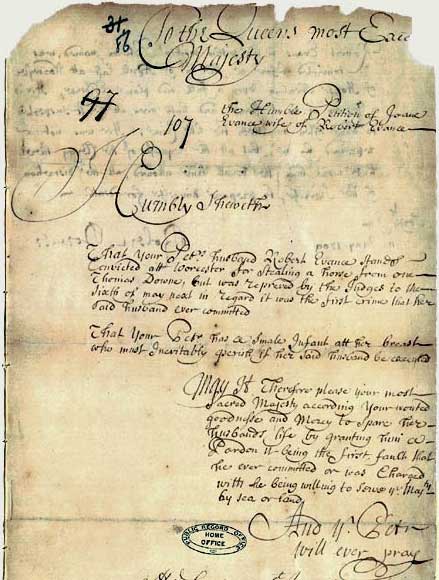 To the Queens most Exce
Majesty
34
56
47
107
the Humble Petition of Joane
Evance wife of Robert Evance
Humbly Sheweth
That Your Petrs husband Robert Evance Stands
Convicted att Worcester for Stealing a horse from one
Thomas Downe, but was repreved by the Judges to the
Sixth of may next in regard it was the first crime that her
said husband ever committed
That Your Petr has a Smale Infant att her breast
who must Inevitably perish if her said husband be executed
May It Therefore please your most
Sacred Majesty according Your wonted
goodness and Mercy to Spare her
husbands life by granting him a
Pardon it being the first fault that
he ever committed or was Charged
with he being willing to Serve yr Maty
by sea or land
And yr Petr
will ever pray
PUBLIC RECORD OFFICE
HOME
OFFICE